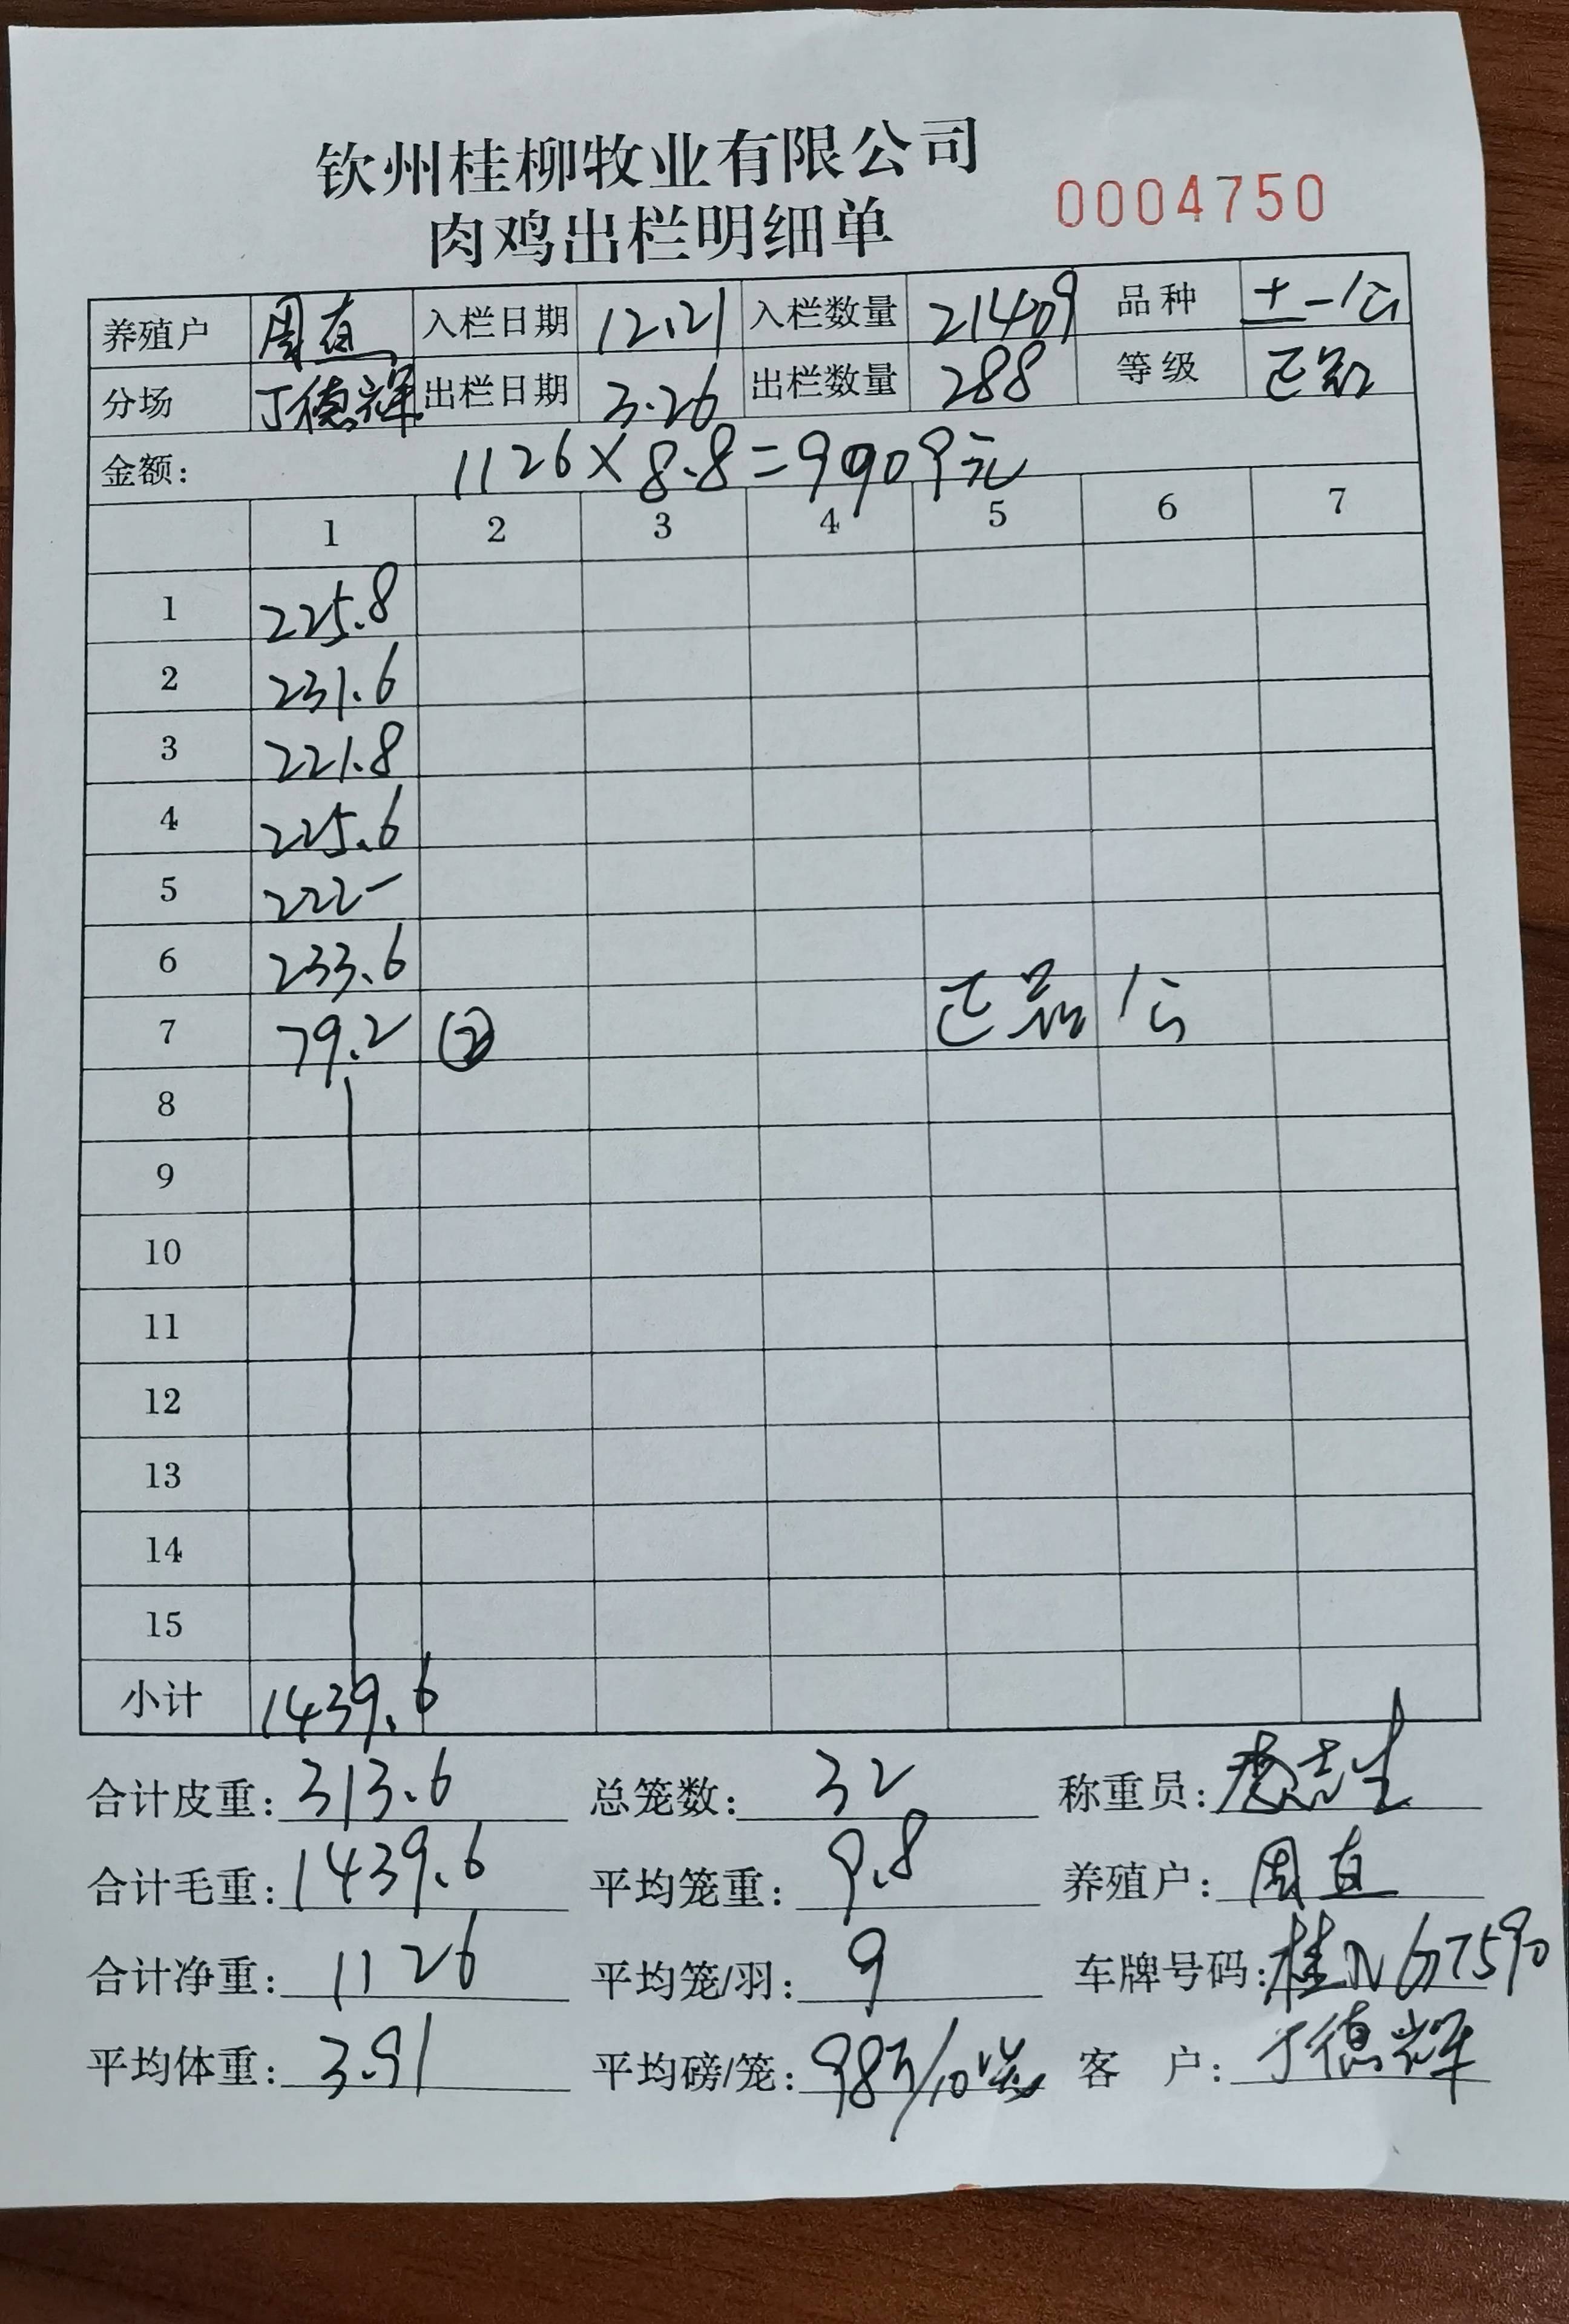 钦州桂柳牧业有限公司
肉鸡出栏明细单
0004750
养殖户 周直 入栏日期 12.21 入栏数量 21409 品种 土一公
分场 丁德辉 出栏日期 3.26 出栏数量 288 等级 正品
金额: 1126×8.8=9909元
1 2 3 4 5 6 7
1 225.8
2 231.6
3 221.8
4 225.6
5 222-
6 233.6
7 79.2 (2) 正品 公
8
9
10
11
12
13
14
15
小计 1439.6
合计皮重: 313.6 总笼数: 32 称重员: 志生
合计毛重: 1439.6 平均笼重: 9.8 养殖户: 周直
合计净重: 1126 平均笼/羽: 9 车牌号码: 桂N67590
平均体重: 3.91 平均磅/笼: 98斤/10笼 客 户: 丁德辉